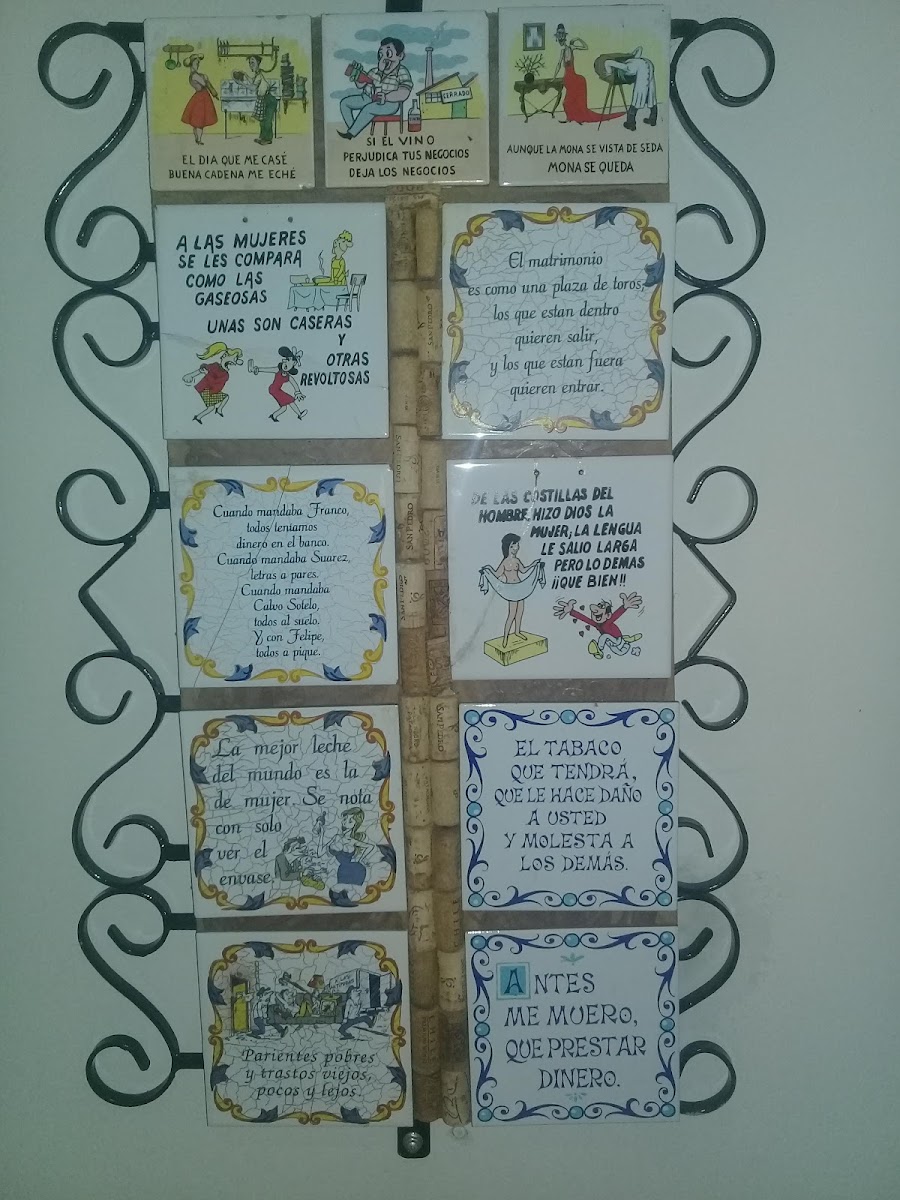 EL DIA QUE ME CASÉ
BUENA CADENA ME ECHÉ
CERRADO
SI EL VINO
PERJUDICA TUS NEGOCIOS
DEJA LOS NEGOCIOS
AUNQUE LA MONA SE VISTA DE SEDA
MONA SE QUEDA
A LAS MUJERES
SE LES COMPARA
COMO LAS
GASEOSAS
UNAS SON CASERAS
Y
OTRAS
REVOLTOSAS
El matrimonio
es como una plaza de toros,
los que estan dentro
quieren salir,
y los que estan fuera
quieren entrar.
Cuando mandaba Franco,
todos teniamos
dinero en el banco.
Cuando mandaba Suarez,
letras a pares.
Cuando mandaba
Calvo Sotelo,
todos al suelo.
Y con Felipe,
todos a pique.
DE LAS COSTILLAS DEL
HOMBRE, HIZO DIOS LA
MUJER, LA LENGUA
LE SALIO LARGA
PERO LO DEMAS
¡¡QUE BIEN!!
La mejor leche
del mundo es la
de mujer. Se nota
con solo
ver el
envase.
EL TABACO
QUE TENDRÁ,
QUE LE HACE DAÑO
A USTED
Y MOLESTA A
LOS DEMÁS.
Parientes pobres
y trastos viejos,
pocos y lejos.
ANTES
ME MUERO,
QUE PRESTAR
DINERO.
SAN PEDRO
SAN PEDRO
SAN PEDRO